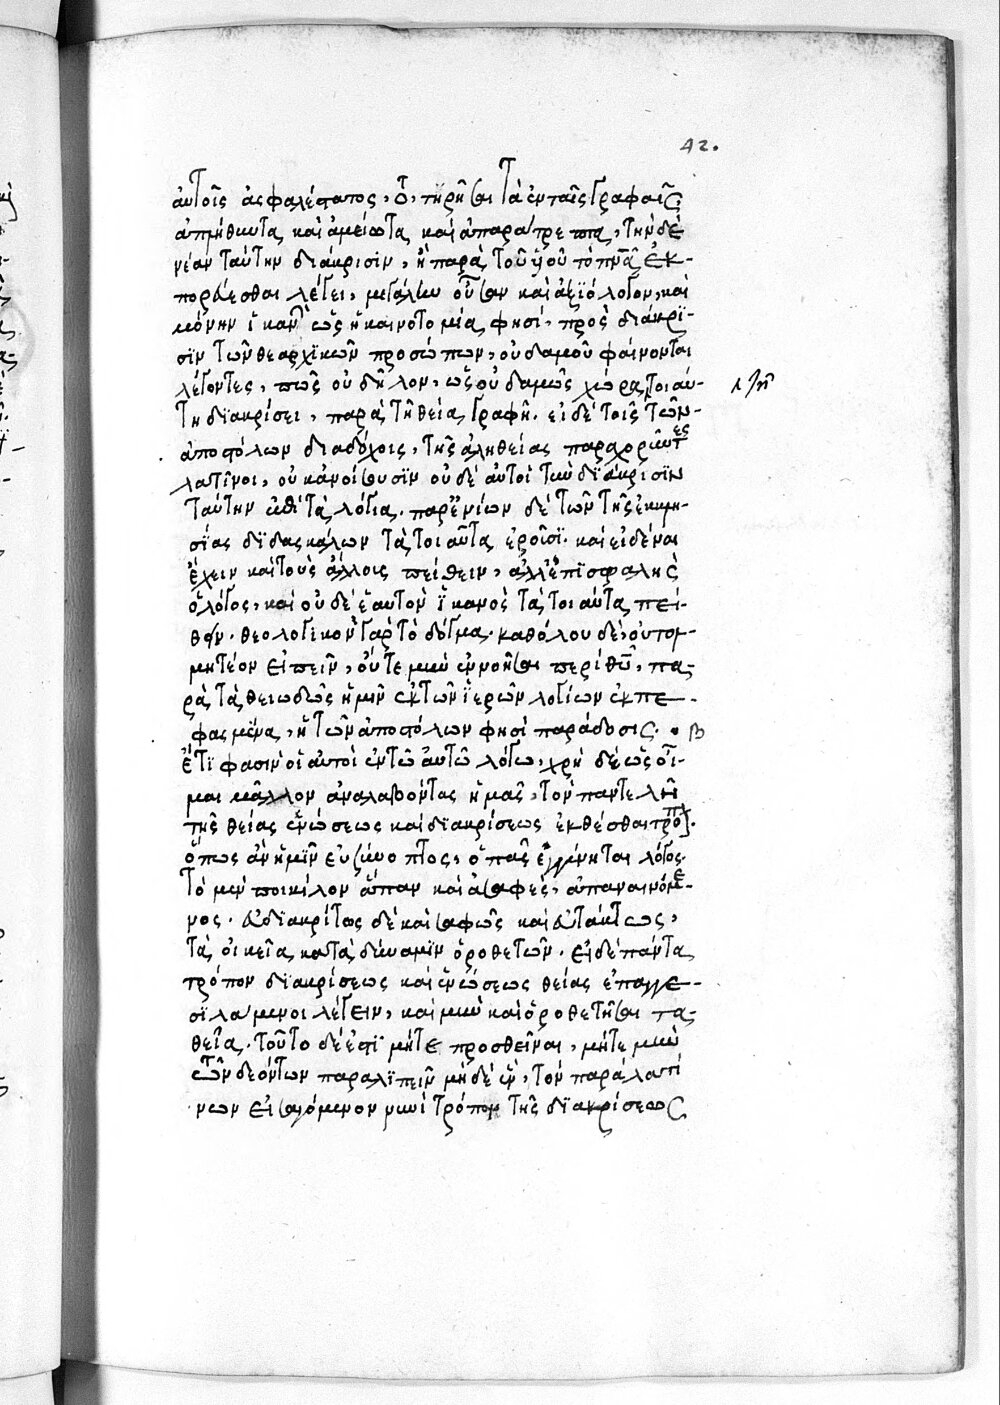 42.
αὐτοῖς ἀσφαλέστατος, ὁ, τηρῆσαι τὰ ἐν ταῖς γραφαῖς
ἀπρόσθετα καὶ ἀμείωτα καὶ ἀπαράτρεπτα, τὴν δὲ
νέαν ταύτην διάκρισιν, ἣ παρὰ τοῦ υἱοῦ τὸ πνᾶ ἐκ-
πορεύεσθαι λέγει, μεγάλην οὖσαν καὶ ἀξιόλογον, καὶ
μόνην ἱκανὴ ὡς ἡ καινοτομία φησί, πρὸς διάκρι-
σϊν τῶν θεαρχϊκῶν προσώπων, οὐδαμοῦ φαίνονται
λέγοντες, πῶς οὐ δῆλον, ὡς οὐδαμῶς χώρα τοιαύ-
τη διακρίσει, παρὰ τῇ θείᾳ γραφῇ. εἰ δὲ τοῖς τῶν
ἀποστόλων διαδόχοις, τῆς ἀληθείας παραχωροῦντες
λατῖνοι, οὐκ ἀνοίσουσϊν οὐδὲ αὐτοὶ τὴν δϊάκρισϊν
ταύτην ἐπὶ τὰ λόγια. παρ' ἐνίων δὲ τῶν τῆς ἐκκλη-
σίας δϊδασκάλων τὰ τοιαῦτα ἐροῦσϊ. καὶ εἰδέναι
ἔχειν καὶ τοὺς ἄλλοις πείθειν, ἀλλ' ἐπϊσφαλὴς
ὁ λόγος, καὶ οὐδὲ ἑαυτὸν ἱκανὸς τὰ τοιαῦτα πεί-
θειν. θεολογικὸν γὰρ τὸ δόγμα. καθόλου δὲ, οὐ τολ-
μητέον εἰπεῖν, οὔτε μὴν ἐννοῆσαι περὶ θῦ, πα-
ρὰ τὰ θειωδῶς ἡμῖν ἐκ τῶν ἱερῶν λογίων ἐκπε-
φασμένα, ἡ τῶν ἀποστόλων φησὶ παράδοσις.
β
ἔτϊ φασὶν οἱ αὐτοὶ ἐν τῷ αὐτῷ λόγῳ, χρὴ δὲ ὡς οἶ-
μαι μᾶλλον ἀναλαβόντας ἡμᾶς, τὸν παντελῆ
τῆς θείας ἑνώσεως καὶ διακρίσεως ἐκθέσθαι τρόπον.
ὅπως ἂν ἡμῖν εὐσύνοπτος, ὁ πᾶς ἐγγένηται λόγος.
τὸ μὲν ποικίλον ἅπαν καὶ ἀσαφὲς, ἀπαναινόμε-
νος. εὐδϊακρίτως δὲ καὶ σαφῶς καὶ εὐτάκτως,
τὰ οἰκεῖα κατὰ δύναμϊν ὁροθετῶν. εἰ δὲ πάντα
τρόπον δϊακρίσεως καὶ ἑνώσεως θείας ἐπαγγε-
σϊλάμενοι λέγειν, καὶ μὴν καὶ ὁροθετῆσαι τὰ
θεῖα. τοῦτο δὲ ἐστϊ μήτε προσθεῖναι, μήτε μὴν
τῶν δεόντων παραλϊπεῖν μηδὲ ἓν, τὸν παρὰ λατί
νων εἰσαγόμενον νυνὶ τρόπον τῆς δϊακρίσεως